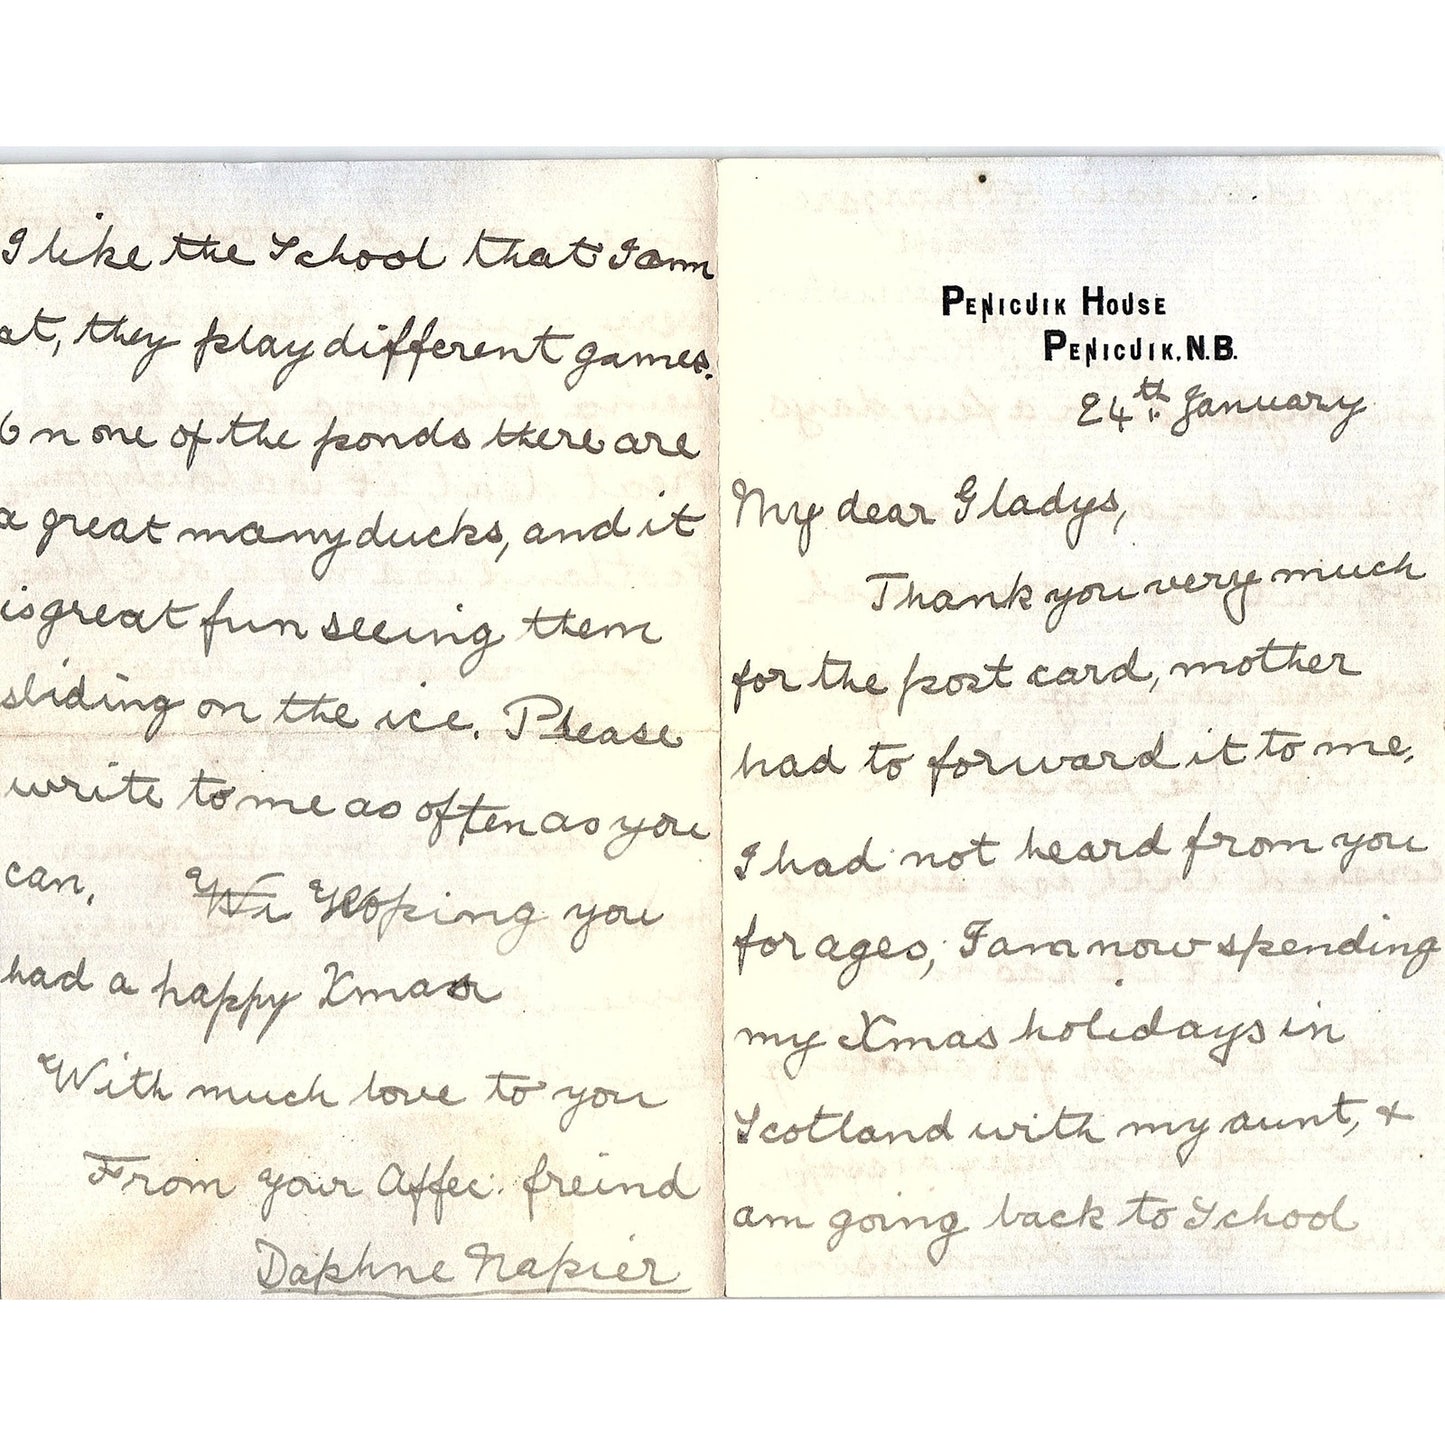 PENICUIK HOUSE
PENICUIK. N.B.
24th January
My dear Gladys,
Thank you very much
for the post card, mother
had to forward it to me.
I had not heard from you
for ages, I am now spending
my Xmas holidays in
Scotland with my aunt, &
am going back to School
I like the School that I am
at, they play different games.
On one of the ponds there are
a great many ducks, and it
is great fun seeing them
sliding on the ice. Please
write to me as often as you
can. Wi Hoping you
had a happy Xmas
With much love to you
From your Affec: freind
Daphne Napier